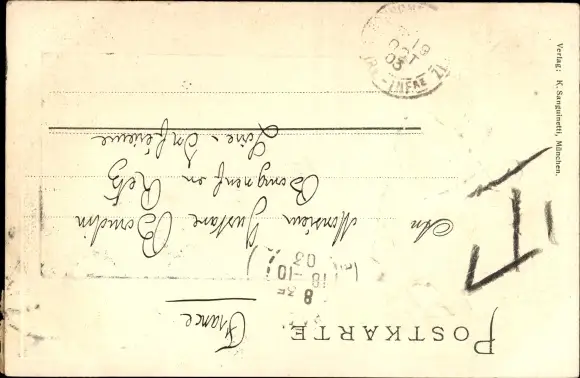 POSTKARTE.
France
An
Monsieur Gustave Baudin
Bourgneuf en Retz
Loire-Inférieure
8 3E
18-10
03
19
OCT
03
INFRE
Verlag: K. Sanguinetti, München.